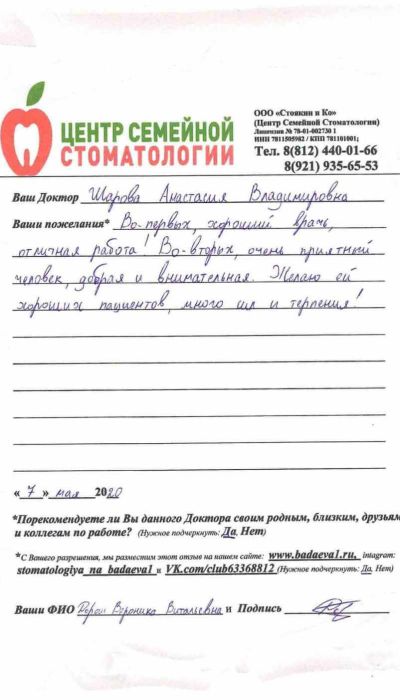 ЦЕНТР СЕМЕЙНОЙ
СТОМАТОЛОГИИ
ООО «Стоякин и Ко»
(Центр Семейной Стоматологии)
Лицензия № 78-01-002730 1
ИНН 7811505982 / КПП 781101001;
Тел. 8(812) 440-01-66
8(921) 935-65-53
Ваш Доктор Шарова Анастасия Владимировна
Ваши пожелания* Во-первых, хороший врач,
отличная работа! Во-вторых, очень приятный
человек, добрая и внимательная. Желаю ей
хороших пациентов, много и терпения!
« 7 » мая 2020
*Порекомендуете ли Вы данного Доктора своим родным, близким, друзьям
и коллегам по работе? (Нужное подчеркнуть: Да, Нет)
*С Вашего разрешения, мы разместим этот отзыв на нашем сайте: www.badaeva1.ru, intagram:
stomatologiya_na_badaeva1 и VK.com/club63368812 (Нужное подчеркнуть: Да, Нет)
Ваши ФИО Вероника Витальевна и Подпись